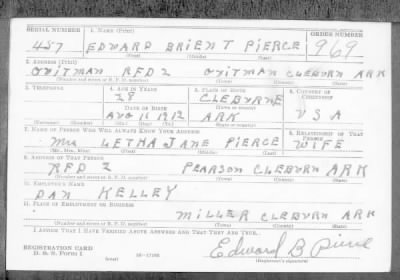 SERIAL NUMBER 1. NAME (Print) ORDER NUMBER
457 EDWARD BRIENT PIERCE 969
(First) (Middle) (Last)
2. ADDRESS (Print)
QUITMAN RFD 2 QUITMAN CLEBURN ARK
(Number and street or R. F. D. number) (Town) (County) (State)
3. TELEPHONE 4. AGE IN YEARS 5. PLACE OF BIRTH 6. COUNTRY OF CITIZENSHIP
28 CLEBURNE
DATE OF BIRTH (Town or county)
AUG 11 1912 ARK USA
(Exchange) (Number) (Mo.) (Day) (Yr.) (State or country)
7. NAME OF PERSON WHO WILL ALWAYS KNOW YOUR ADDRESS 8. RELATIONSHIP OF THAT PERSON
Mrs LETHA JANE PIERCE WIFE
(Mr., Mrs., Miss) (First) (Middle) (Last)
9. ADDRESS OF THAT PERSON
RFD 2 PEARSON CLEBURN ARK
(Number and street or R. F. D. number) (Town) (County) (State)
10. EMPLOYER'S NAME
DAN KELLEY
11. PLACE OF EMPLOYMENT OR BUSINESS
MILLER CLEBURN ARK
(Number and street or R. F. D. number) (Town) (County) (State)
I AFFIRM THAT I HAVE VERIFIED ABOVE ANSWERS AND THAT THEY ARE TRUE.
Edward B Pierce
REGISTRATION CARD
D. S. S. Form 1 (over) (Registrant's signature)